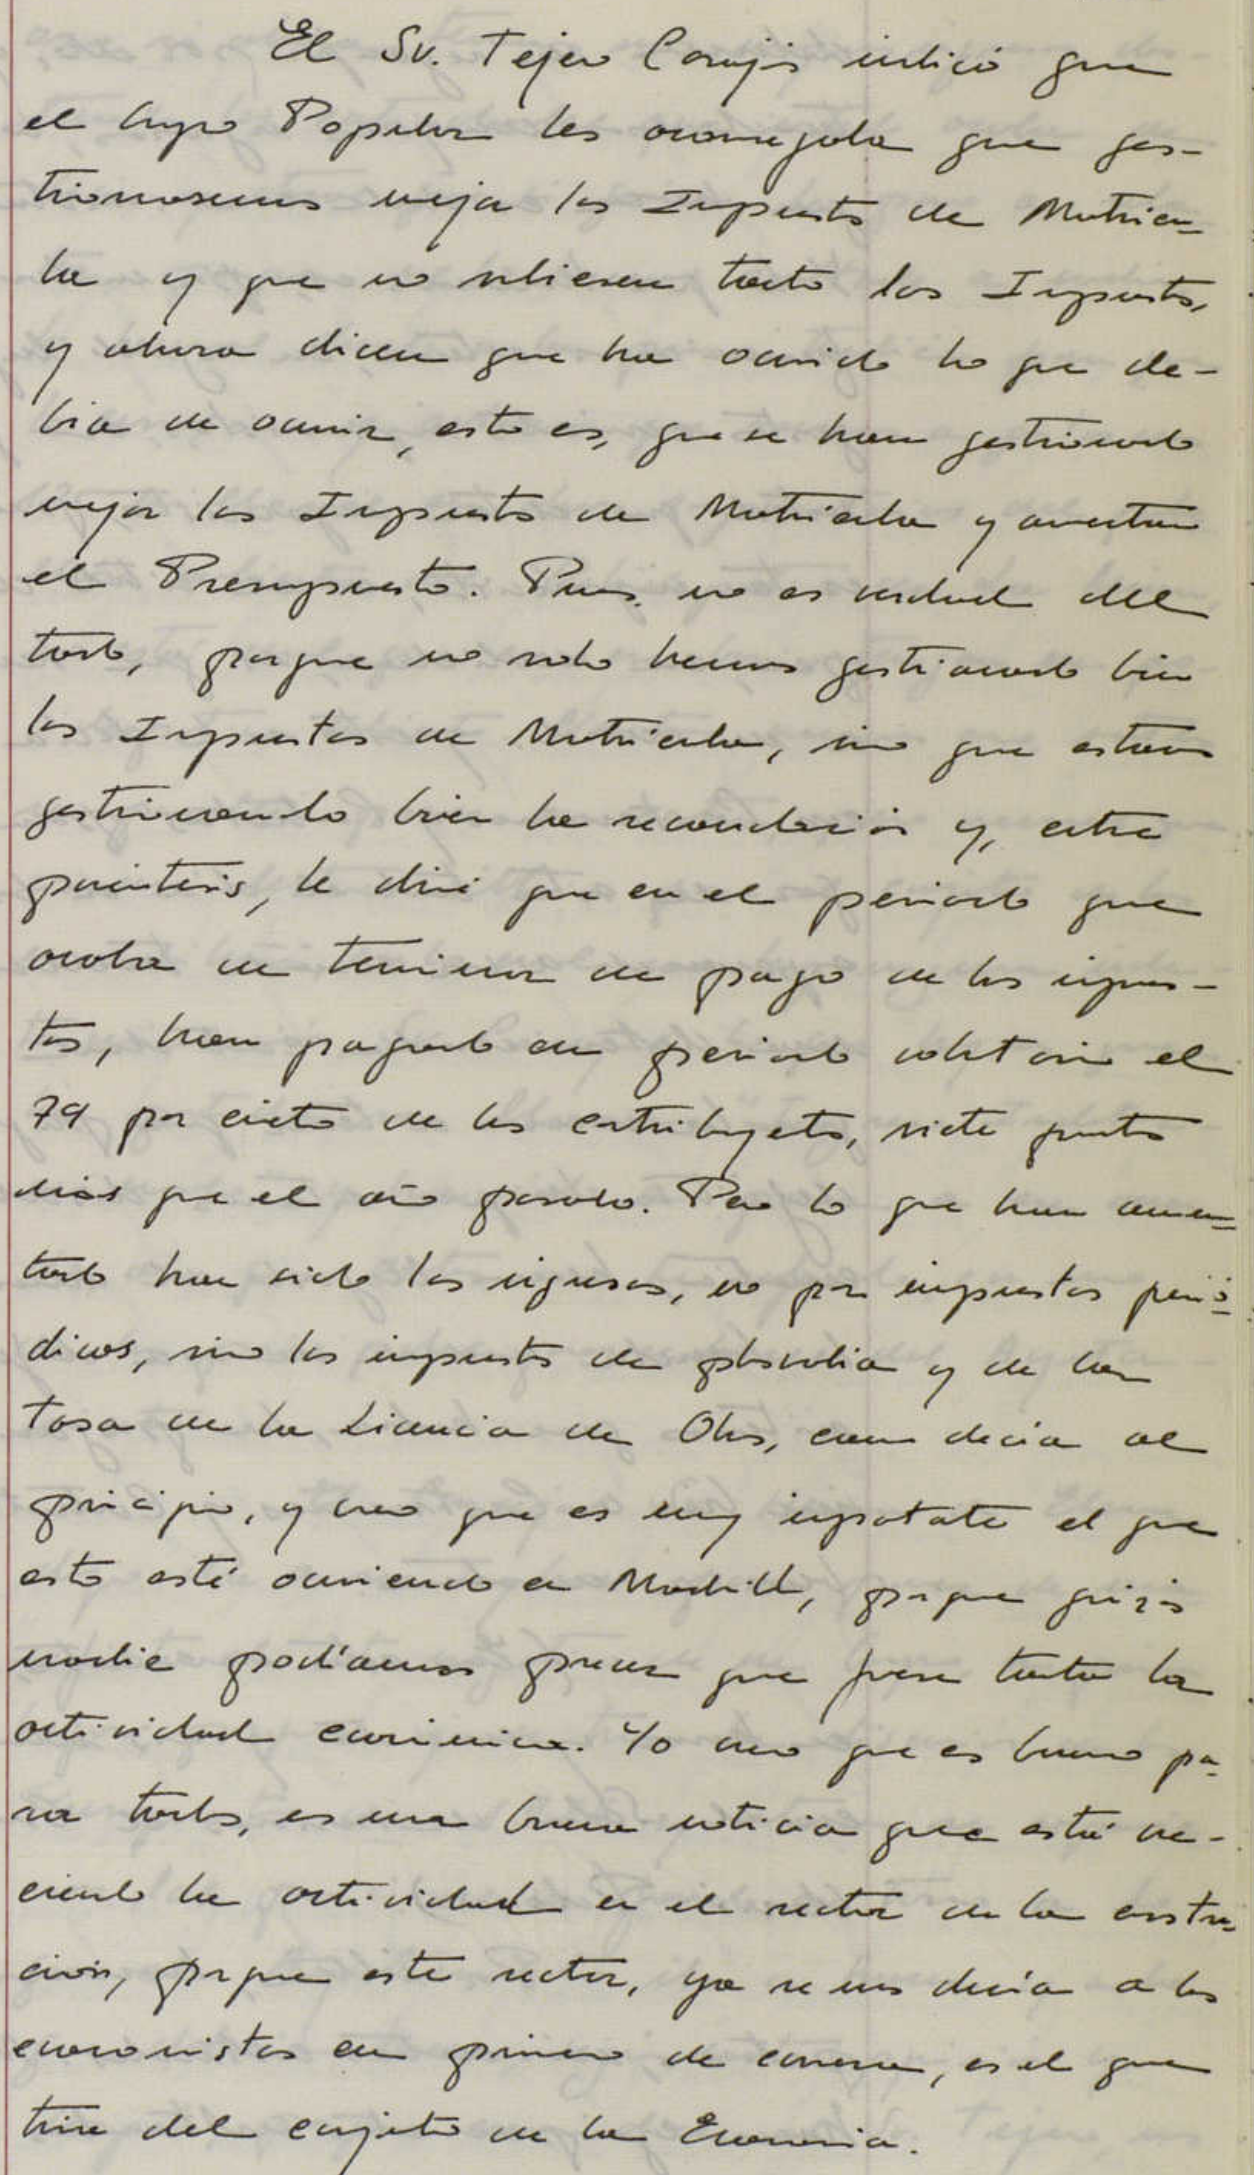 El Sr. Tejero Corujo indicó que
el Grupo Popular les aconsejaba que ges-
tionasemos mejor los Impuestos de Matrícu-
la y que no subiesen tanto los Impuestos,
y ahora dicen que ha ocurrido lo que de-
bía de ocurrir, esto es, que se han gestionado
mejor los Impuestos de Matrícula y aumentan
el Presupuesto. Pues, no es verdad del
todo, porque no solo hemos gestionado bien
los Impuestos de Matrícula, sino que estamos
gestionando bien la recaudación y, entre
paréntesis, le diré que en el periodo que
acaba de terminar de pago de los impues-
tos, han pagado en periodo voluntario el
79 por ciento de los contribuyentes, siete puntos
más que el año pasado. Pero lo que han aumen-
tado han sido los ingresos, no por impuestos perió-
dicos, sino los impuestos de plusvalía y de la
Tasa de la Licencia de Obras, como decía al
principio, y creo que es muy importante el que
esto esté ocurriendo en Madrid, porque quizás
nadie podíamos prever que fuese tanta la
actividad económica. Yo creo que es bueno pa-
ra todos, es una buena noticia que esté cre-
ciendo la actividad en el sector de la construc-
ción, porque este sector, ya se nos decía a los
economistas en primero de carrera, es el que
tira del conjunto de la Economía.